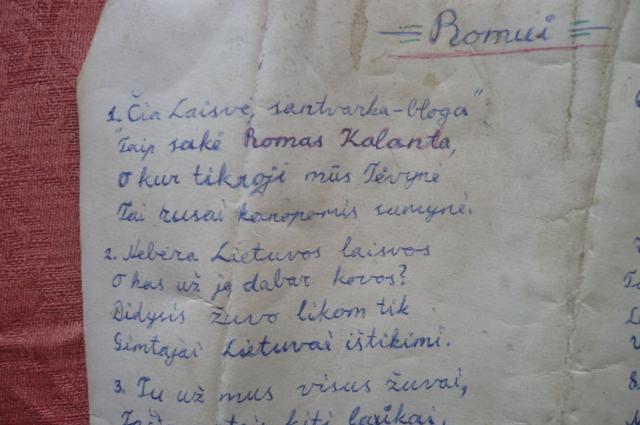 Romui
1. Čia Laisvė, santvarka-bloga"
"Taip sakė Romas Kalanta,
O kur tikroji mūs Tėvynė
Tai rusai kanopomis sumynė.
2. Nebėra Lietuvos laisvos
O kas už ją dabar kovos?
Didysis žuvo likom tik
Gimtajai Lietuvai ištikimi.
3. Tu už mus visus žuvai,
kiti laukai,